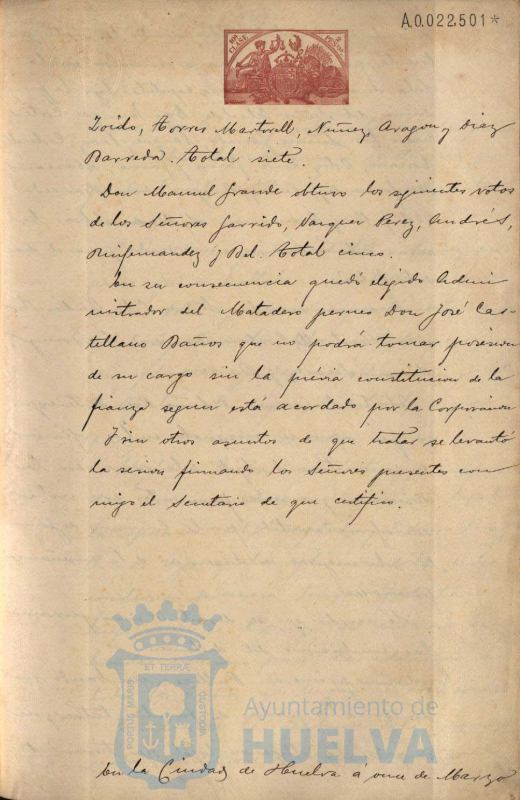 A.0.022.501*
10ª CLASE 2 PESETAS
Zoido, Torres Martorell, Nuñez, Aragon y Diaz
Barreda. Total siete.
Don Manuel Grande obtuvo los siguientes votos
de los Señores Garrido, Vazquez Perez, Andrés,
y Bel. Total cinco.
En su consecuencia quedó elejido Admi
nistrador del Matadero Don José Cas-
tellano Baños que no podrá tomar posesion
de su cargo sin la prévia constitucion de la
fianza segun está acordado por la Corporacion
Y sin otros asuntos de que tratar se levantó
la sesion firmando los Señores presentes con
migo el Secretario de que certifico.
PORTUS MARIS
ET TERRÆ
CUSTODIA
Ayuntamiento de
HUELVA
En la Ciudad de Huelva á once de Marzo